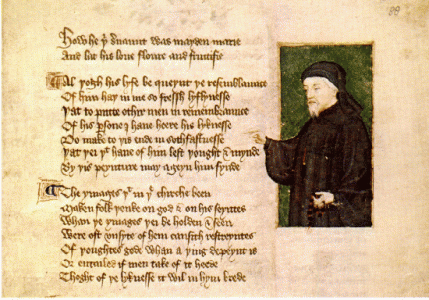 How he þͥ seruaunt was mayden marie
And lat his loue floure and fructifie
Al þogh his lyfe be queynt þe resemblaunce
Of him haþ in me so fressh lyflynesse
Þat to putte othir men in remembraunce
Of his ꝑsone I haue heere his lyknesse
Do make to þis ende in sothfastnesse
Þat þei þͭ haue of him lest þought & mynde
By þis peynture may ageyn him fynde
The ymages þͭ in þͤ chirche been
Maken folk þenke on god & on his seyntes
Whan þe ymages þei beholden & seen
Were oft vnsyte of hem causith restreyntes
Of þoughtes gode whan a þing depeynt is
Or entailed if men take of it heede
Thoght of þe lyknesse it wil in hym brede